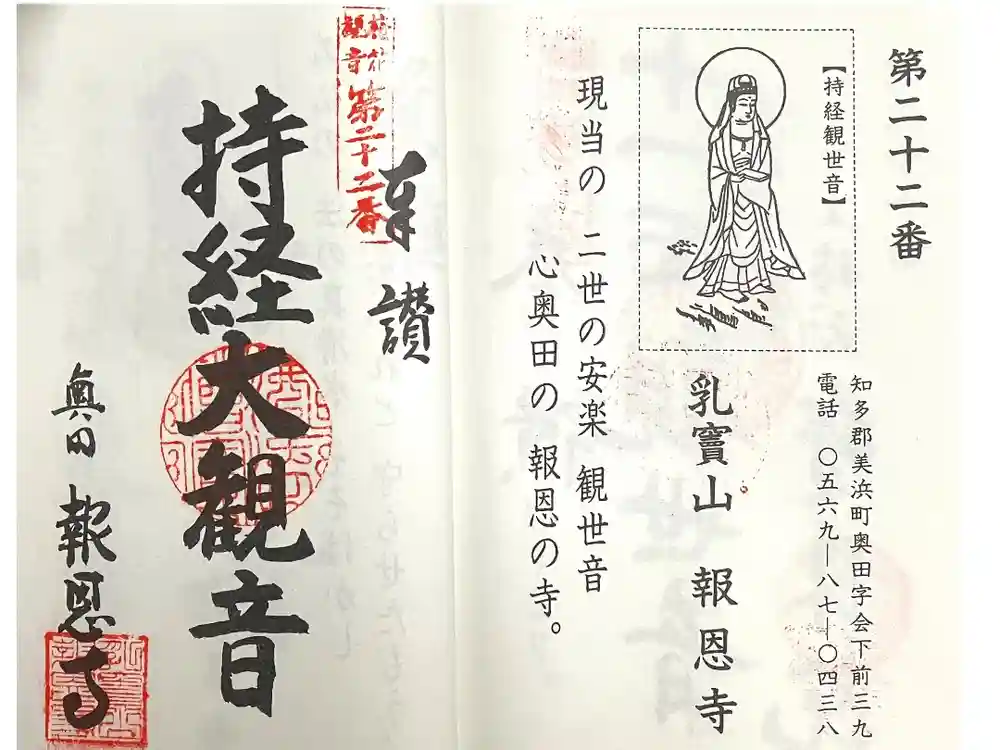 第二十二番
【持経観世音】
知多郡美浜町奥田字会下前三九
電話 〇五六九―八七―〇四三八
乳竇山 報恩寺
現当の 二世の安楽 観世音
心奥田の 報恩の寺。
奉讃
梅花観音
第二十二番
持経大観音
奥田 報恩寺